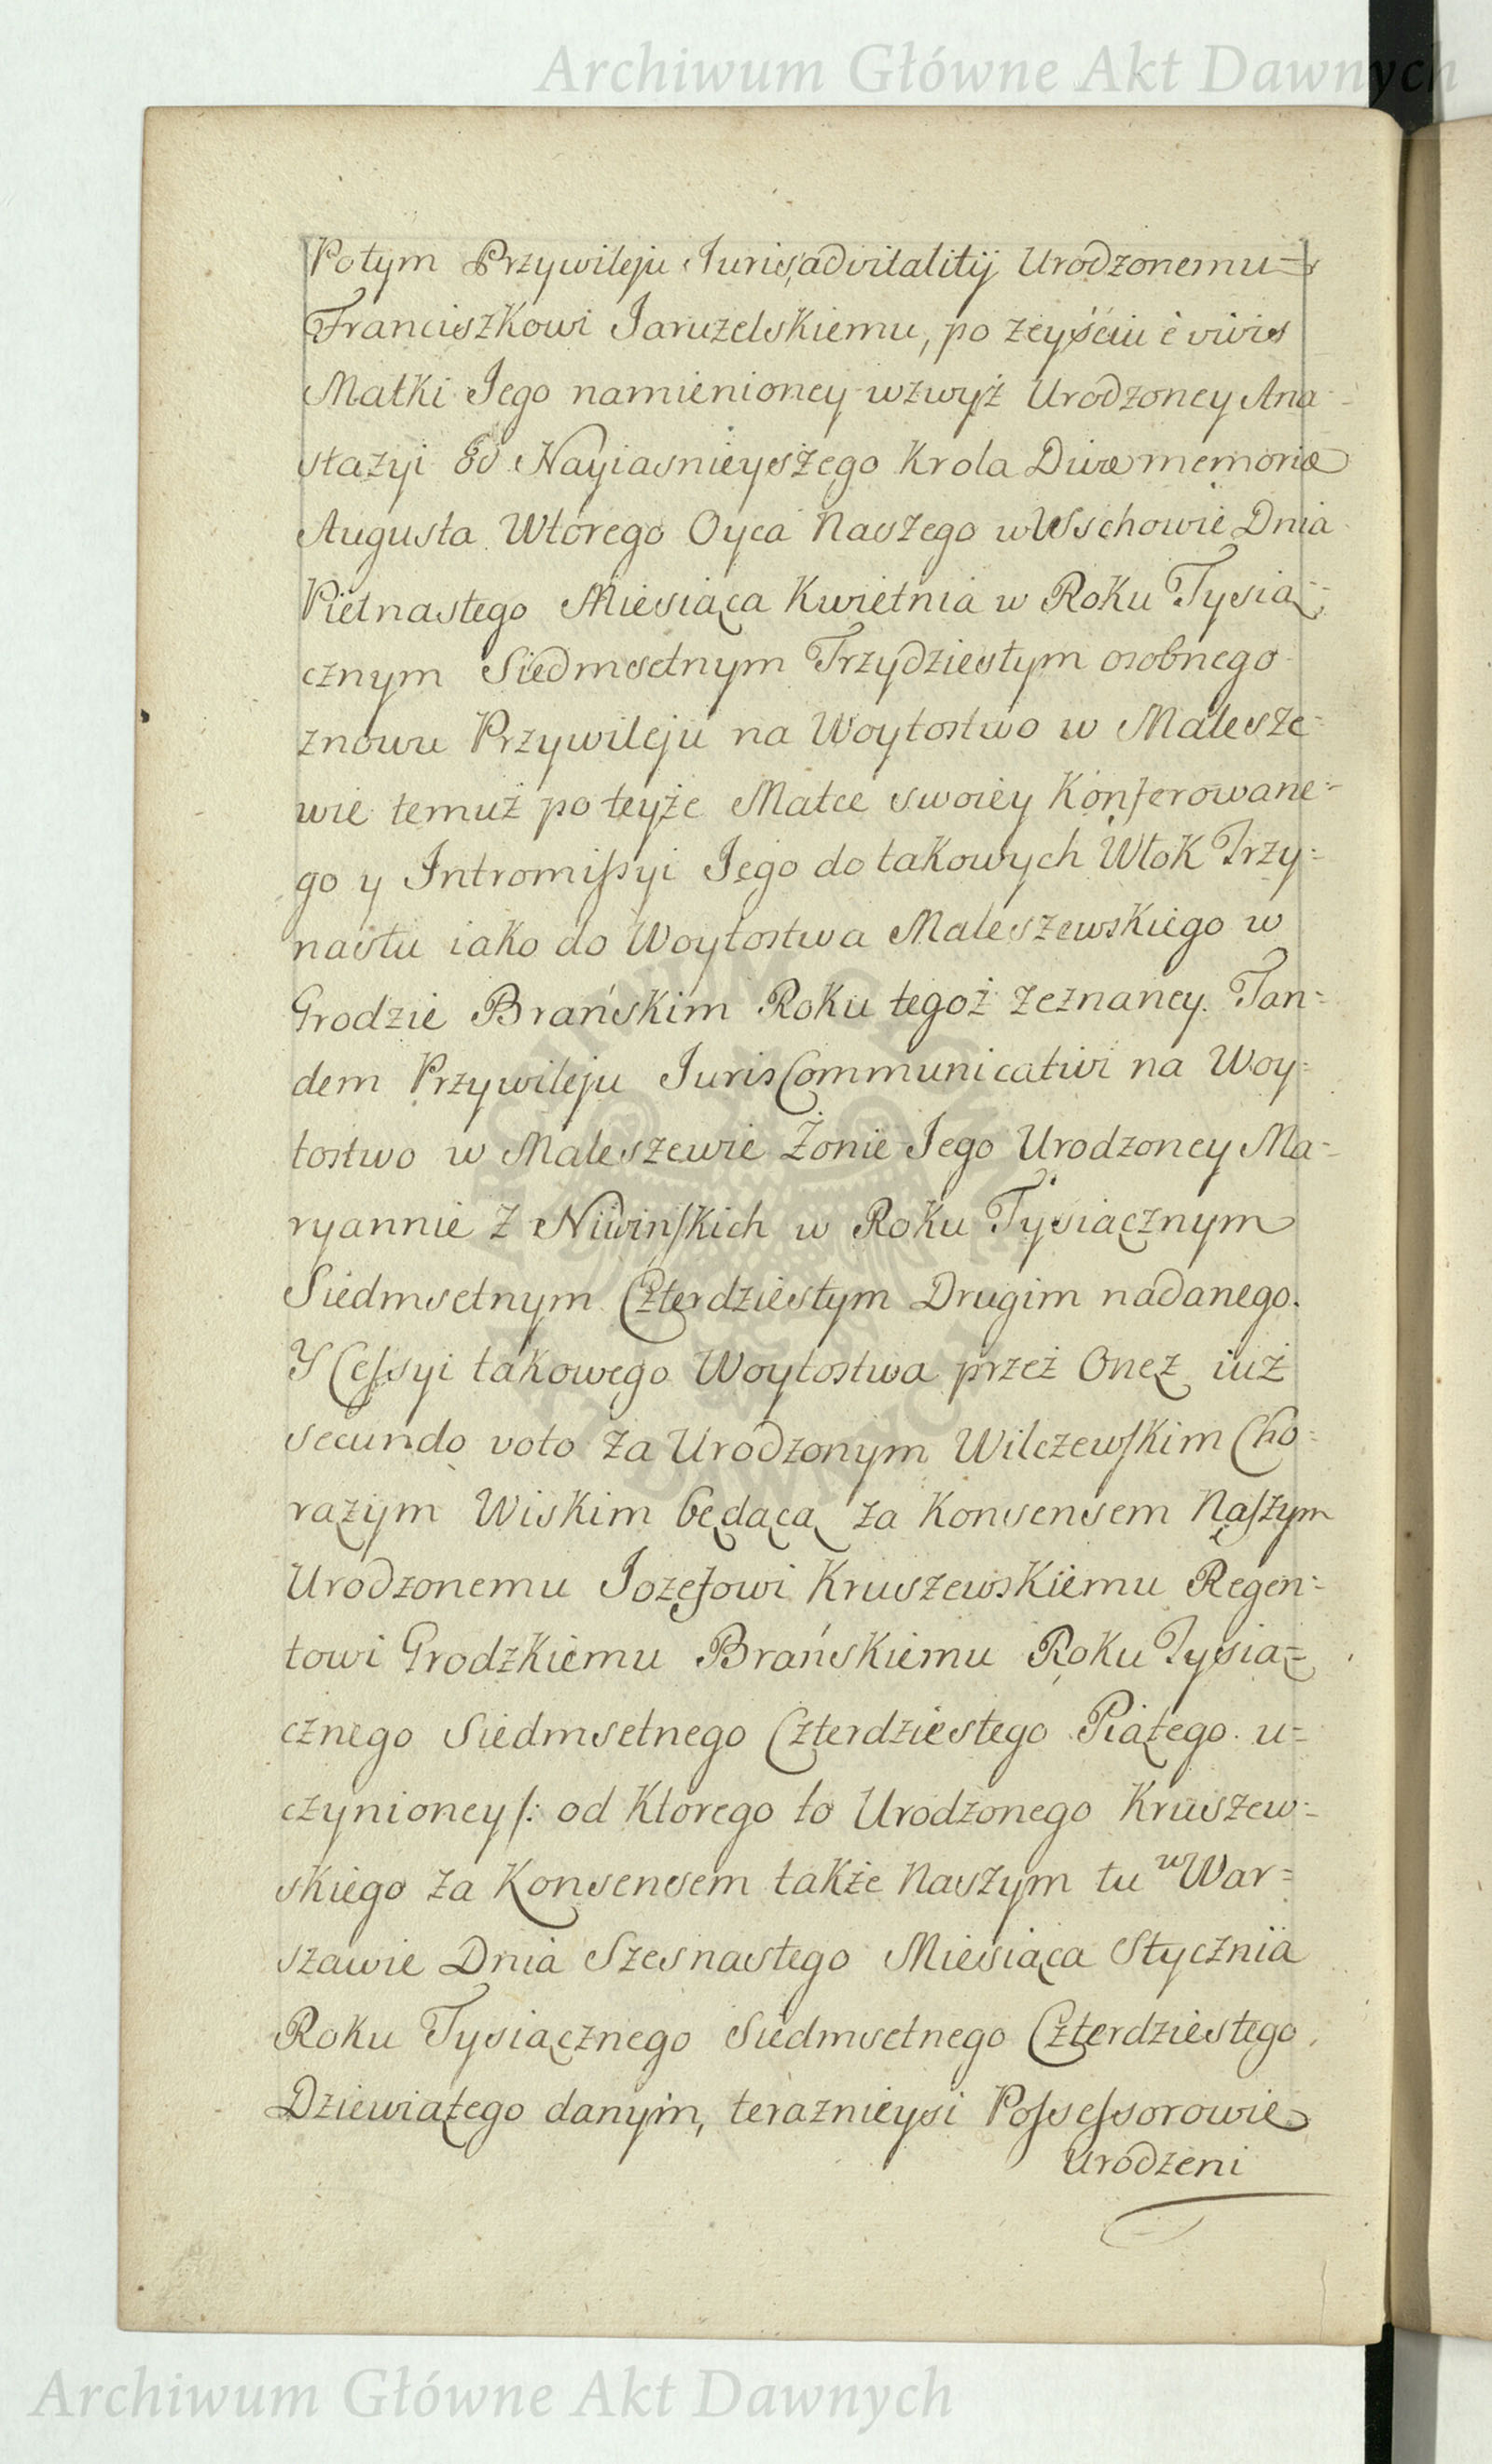 Archiwum Główne Akt Dawnych
Potym Przywileju Juris advitalitij Urodzonemu=
Franciszkowi Jaruzelskiemu, po zeyściu è vivis
Matki Jego namienioney wzwyż Urodzoney Ana-
stazyi od Nayiasnieyszego Krola Divæ memoriæ
Augusta Wtorego Oyca Naszego w Wschowie Dnia
Pietnastego Miesiąca Kwietnia w Roku Tysią=
cznym Siedmsetnym Trzydziestym osobnego
znowu Przywileju na Woytostwo w Malesze=
wie temuż po teyże Matce swoiey Konferowane=
go y Intromissyi Jego do takowych Włok Trzy=
nastu iako do Woytostwa Maleszewskiego w
Grodzie Brańskim Roku tegoż zeznaney. Tan=
dem Przywileju Juris Communicativi na Woy=
tostwo w Maleszewie Żonie Jego Urodzoney Ma=
ryannie z Niwinskich w Roku Tysiącznym
Siedmsetnym Czterdziestym Drugim nadanego.
Y Cessyi takowego Woytostwa przeż Onęż iuż
secundo voto za Urodzonym Wilczewskim Cho=
rążym Wiskim będącą za Konsensem Naszym
Urodzonemu Jozefowi Kruszewskiemu Regen=
towi Grodzkiemu Brańskiemu Roku Tysią=
cznego Siedmsetnego Czterdziestego Piątego. u=
czynioney/: od Ktorego to Urodzonego Kruszew=
skiego za Konsensem także Naszym tu w War=
szawie Dnia Szesnastego Miesiąca Stycznia
Roku Tysiącznego Siedmsetnego Czterdziestego
Dziewiątego danym, teraznieysi Possessorowie
Urodzeni
Archiwum Główne Akt Dawnych